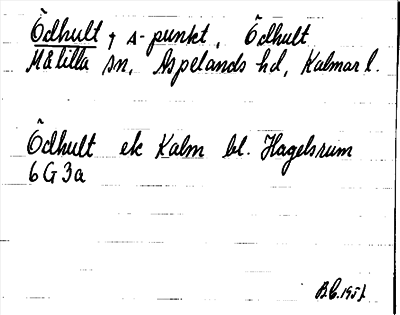 Ödhult + △-punkt, Ödhult
Målilla sn, Aspelands hd, Kalmar l.
Ödhult ek Kalm bl. Hagelsrum
6 G 3a